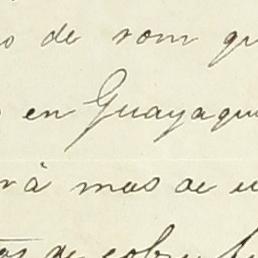 de rom
en Guayaqui
rà mas de u
de cobre